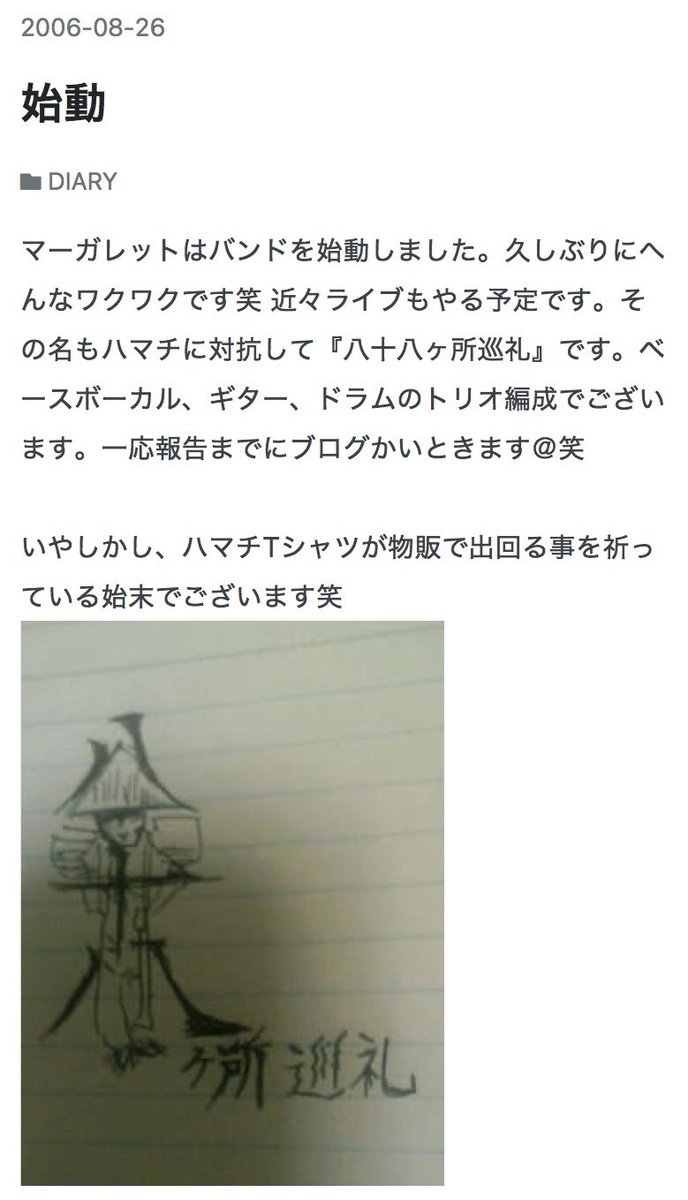 2006-08-26
始動
DIARY
マーガレットはバンドを始動しました。久しぶりにへ
んなワクワクです笑 近々ライブもやる予定です。そ
の名もハマチに対抗して『八十八ヶ所巡礼』です。ベ
ースボーカル、ギター、ドラムのトリオ編成でござい
ます。一応報告までにブログかいときます@笑
いやしかし、ハマチTシャツが物販で出回る事を祈っ
ている始末でございます笑
八
十
八
ヶ所巡礼